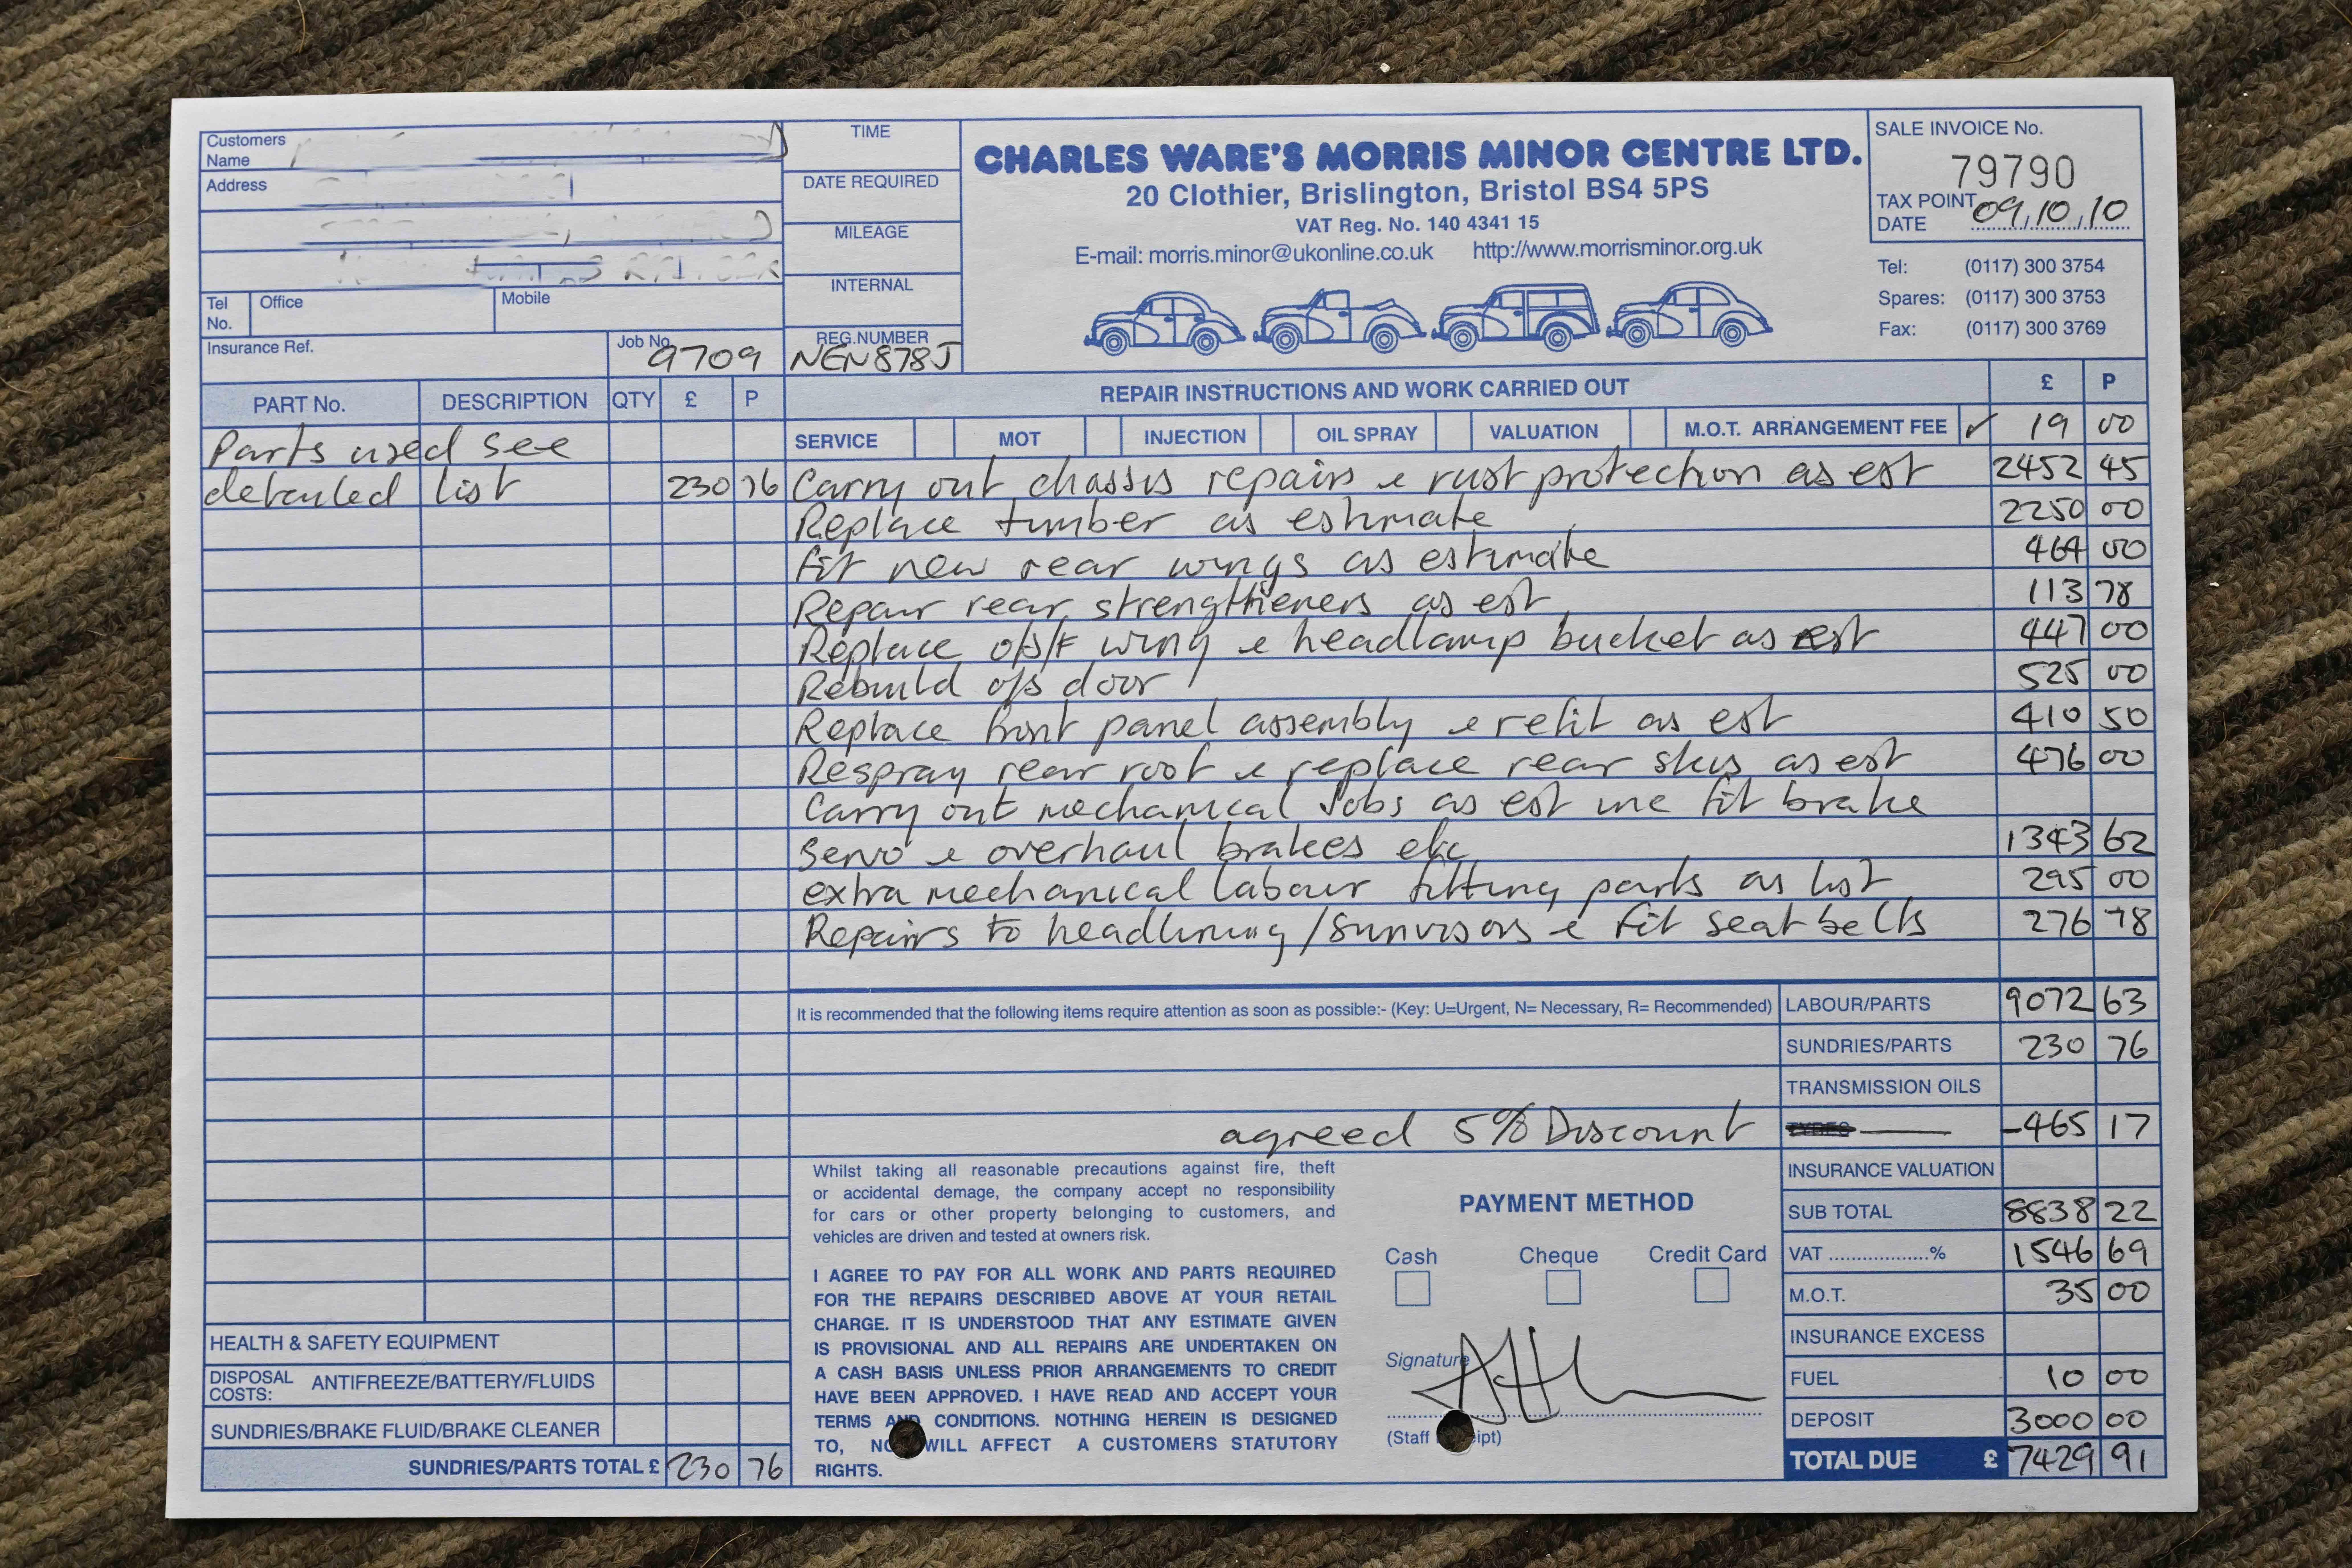 Customers
Name
Address
Tel
No.
Office
Mobile
Insurance Ref.
Job No.
9709
TIME
DATE REQUIRED
MILEAGE
INTERNAL
REG.NUMBER
NEN878J
CHARLES WARE'S MORRIS MINOR CENTRE LTD.
20 Clothier, Brislington, Bristol BS4 5PS
VAT Reg. No. 140 4341 15
E-mail: morris.minor@ukonline.co.uk http://www.morrisminor.org.uk
SALE INVOICE No.
79790
TAX POINT
DATE 09,10,10
Tel: (0117) 300 3754
Spares: (0117) 300 3753
Fax: (0117) 300 3769
PART No. DESCRIPTION QTY £ P
Parts used see
detailed list 230 76
HEALTH & SAFETY EQUIPMENT
DISPOSAL
COSTS: ANTIFREEZE/BATTERY/FLUIDS
SUNDRIES/BRAKE FLUID/BRAKE CLEANER
SUNDRIES/PARTS TOTAL £ 230 76
REPAIR INSTRUCTIONS AND WORK CARRIED OUT £ P
SERVICE MOT INJECTION OIL SPRAY VALUATION M.O.T. ARRANGEMENT FEE ✓ 19 00
Carry out chassis repairs & rust protection as est 2452 45
Replace timber as estimate 2250 00
Fit new rear wings as estimate 464 00
Repair rear strengtheners as est 113 78
Replace o/s/f wing & headlamp bucket as est 447 00
Rebuild o/s door 525 00
Replace front panel assembly & refit as est 410 50
Respray rear roof & replace rear skis as est 476 00
Carry out mechanical Jobs as est inc fit brake
servo & overhaul brakes etc 1343 62
extra mechanical labour fitting parts as list 295 00
Repairs to headlining/sunvisors & fit seat belts 276 78
It is recommended that the following items require attention as soon as possible:- (Key: U=Urgent, N= Necessary, R= Recommended)
LABOUR/PARTS 9072 63
SUNDRIES/PARTS 230 76
TRANSMISSION OILS
agreed 5% Discount TYRES -465 17
INSURANCE VALUATION
SUB TOTAL 8838 22
VAT ..................% 1546 69
M.O.T. 35 00
INSURANCE EXCESS
FUEL 10 00
DEPOSIT 3000 00
TOTAL DUE £ 7429 91
Whilst taking all reasonable precautions against fire, theft
or accidental damage, the company accept no responsibility
for cars or other property belonging to customers, and
vehicles are driven and tested at owners risk.
I AGREE TO PAY FOR ALL WORK AND PARTS REQUIRED
FOR THE REPAIRS DESCRIBED ABOVE AT YOUR RETAIL
CHARGE. IT IS UNDERSTOOD THAT ANY ESTIMATE GIVEN
IS PROVISIONAL AND ALL REPAIRS ARE UNDERTAKEN ON
A CASH BASIS UNLESS PRIOR ARRANGEMENTS TO CREDIT
HAVE BEEN APPROVED. I HAVE READ AND ACCEPT YOUR
TERMS AND CONDITIONS. NOTHING HEREIN IS DESIGNED
TO, WILL AFFECT A CUSTOMERS STATUTORY
RIGHTS.
PAYMENT METHOD
Cash Cheque Credit Card
Signature
(Staff